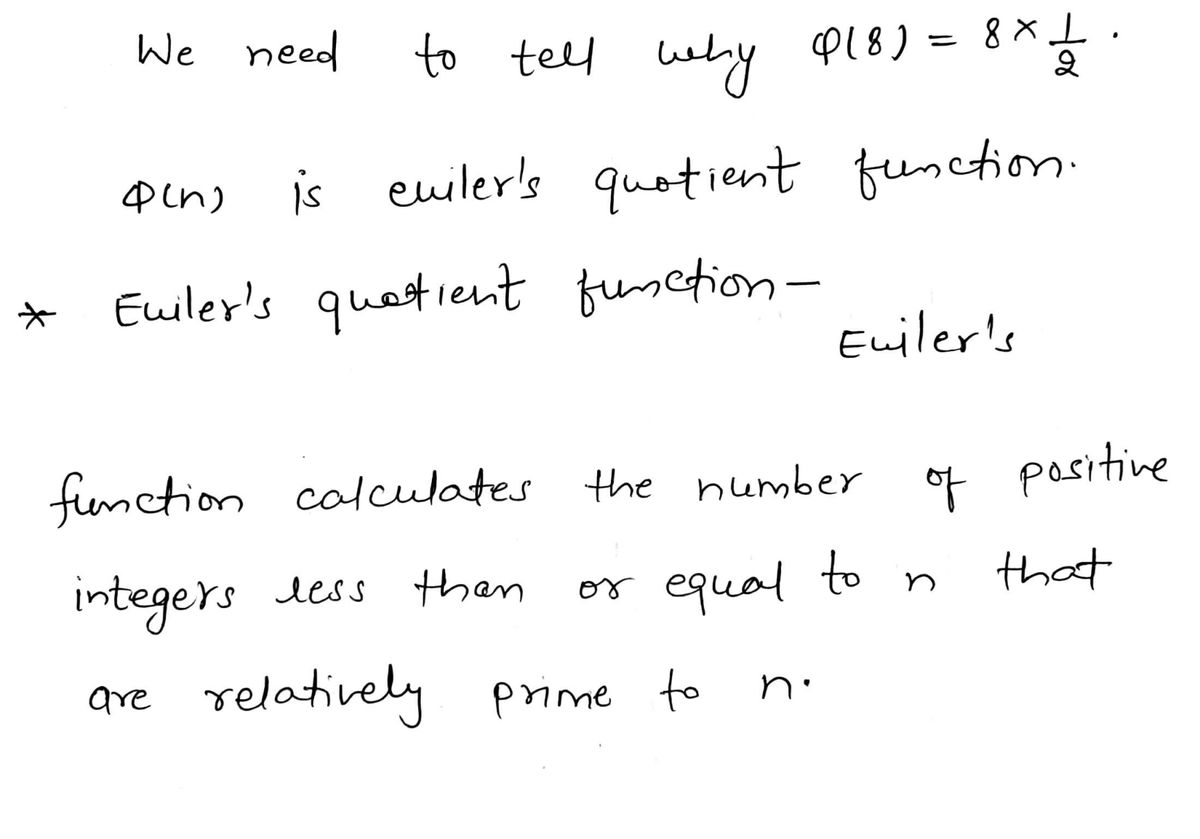 We need to tell why φ(8) = 8 × 1/2 .
φ(n) is euiler's quotient function.
* Euiler's quotient function –
Euiler's
function calculates the number of positive
integers less than or equal to n that
are relatively prime to n.